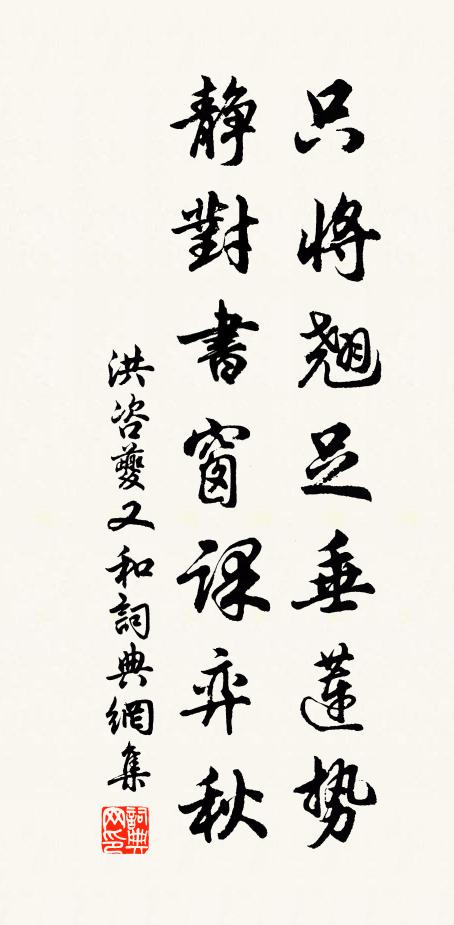 只將翹足垂蓮勢
靜對書窗課弈秋
洪咨夔又和詞典網集
詞典網印